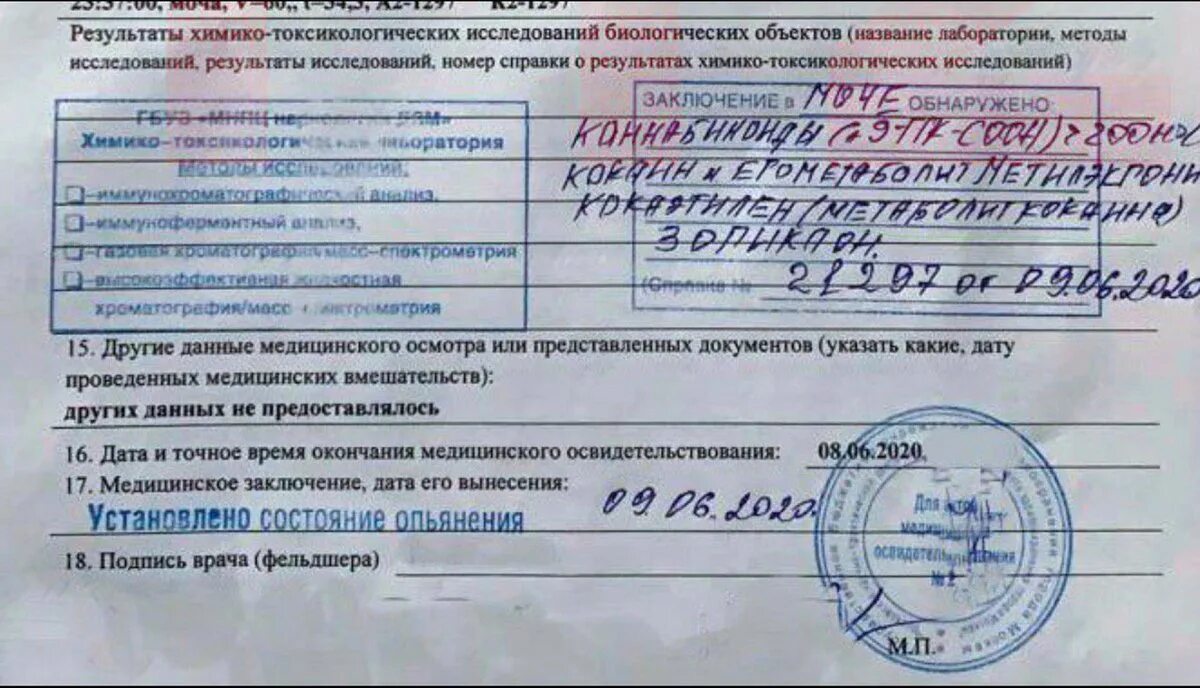 23:37:00, моча, V=60,, t=34,5, А2-1297 К2-1297
Результаты химико-токсикологических исследований биологических объектов (название лаборатории, методы
исследований, результаты исследований, номер справки о результатах химико-токсикологических исследований)
ГБУЗ «МНПЦ наркологии ДЗМ»
Химико-токсикологическая лаборатория
Методы исследований:
–иммунохроматографический анализ,
–иммуноферментный анализ,
–газовая хроматография масс–спектрометрия
–высокоэффективная жидкостная
хроматография/масс спектрометрия
ЗАКЛЮЧЕНИЕ в МОЧЕ ОБНАРУЖЕНО:
КАННАБИНОИДЫ
КОКАИН и ЕГО МЕТАБОЛИТ МЕТИЛЭКГОНИ
КОКАЭТИЛЕН (МЕТАБОЛИТ КОКАИНА)
ЗОПИКЛОН.
(Справка № 21297 от 09.06.2020
15. Другие данные медицинского осмотра или представленных документов (указать какие, дату
проведенных медицинских вмешательств):
других данных не предоставлялось
16. Дата и точное время окончания медицинского освидетельствования: 08.06.2020
17. Медицинское заключение, дата его вынесения: 09.06.2020.
Установлено состояние опьянения
18. Подпись врача (фельдшера)
Для актов
медицинского
освидетельствования
М.П.